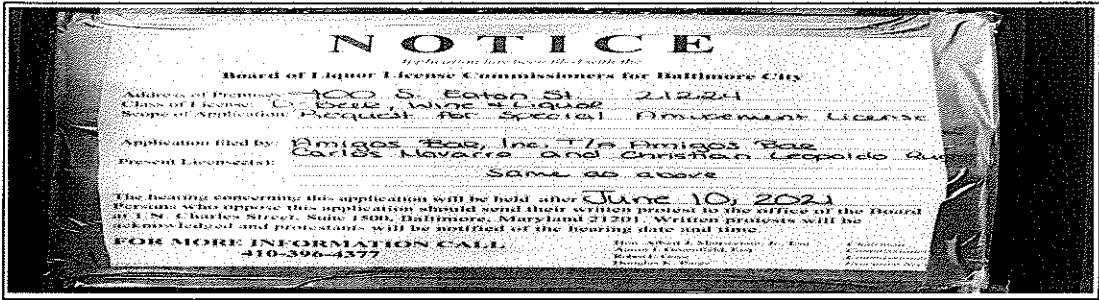 NOTICE
Application has been filed with the
Board of Liquor License Commissioners for Baltimore City
Address of Premises: 700 S. Eaton St. 21224
Class of License: D- Beer, Wine & Liquor
Scope of Application: Request for Special Amusement License
Application filed by: Amigos Bar, Inc. T/A Amigos Bar
Carlos Navarro and Christian Leopoldo
Present Licensee(s):
Same as above
The hearing concerning this application will be held after June 10, 2021
Persons who oppose this application should send their written protest to the office of the Board
at 1 N. Charles Street, Suite 1500, Baltimore, Maryland 21201. Written protests will be
acknowledged and protestants will be notified of the hearing date and time.
FOR MORE INFORMATION CALL
410-396-4377